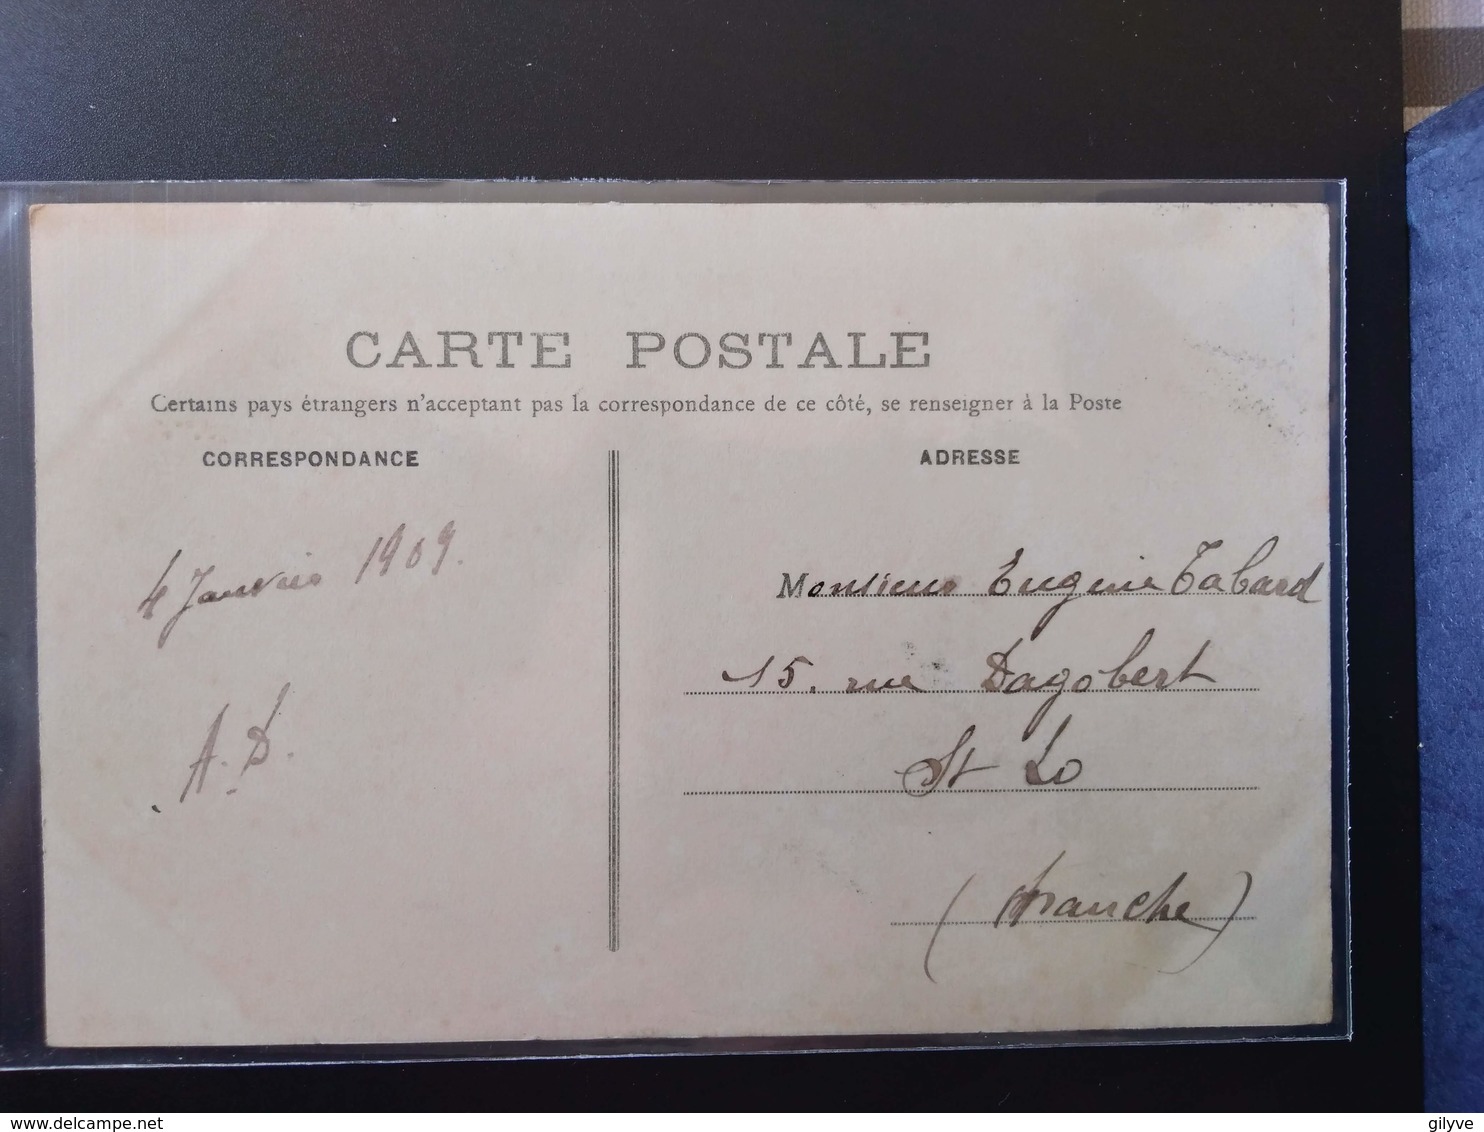 CARTE POSTALE
Certains pays étrangers n'acceptant pas la correspondance de ce côté, se renseigner à la Poste
CORRESPONDANCE
4 Janvier 1909.
A. D.
ADRESSE
Monsieur Eugène Tabard
15. rue Dagobert
St Lo
(Manche)
delcampe.net
gilyve